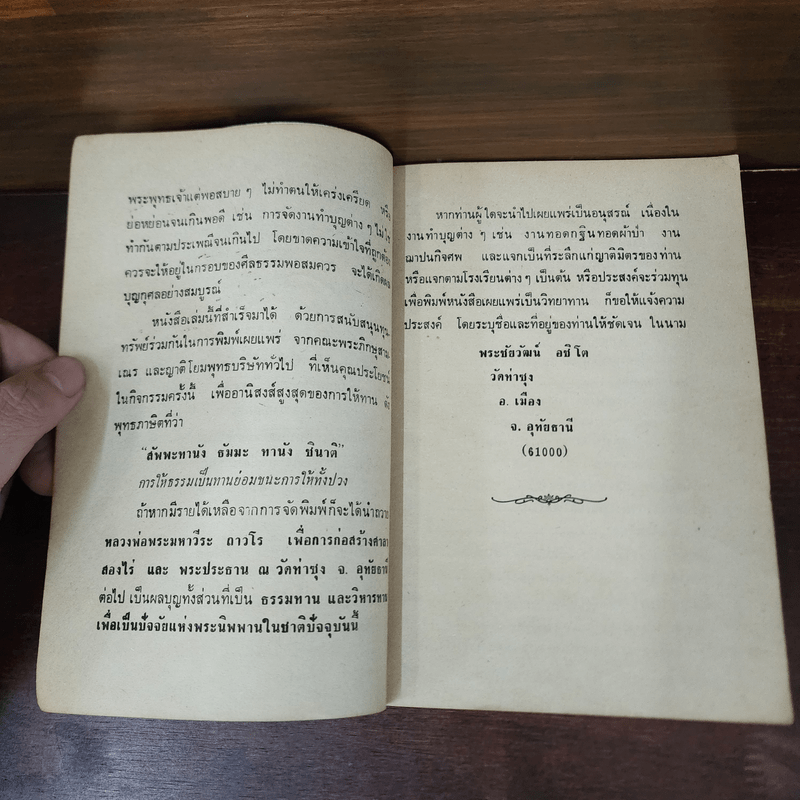 พระพุทธเจ้าแต่พอสบาย ๆ ไม่ทำตนให้เคร่งเครียด หรือ
ย่อหย่อนจนเกินพอดี เช่น การจัดงานทำบุญต่าง ๆ ไม่ใช่
ทำกันตามประเพณีจนเกินไป โดยขาดความเข้าใจที่ถูกต้อง
ควรจะให้อยู่ในกรอบของศีลธรรมพอสมควร จะได้เกิดผล
บุญกุศลอย่างสมบูรณ์
หนังสือเล่มนี้ที่สำเร็จมาได้ ด้วยการสนับสนุนทุน
ทรัพย์ร่วมกันในการพิมพ์เผยแพร่ จากคณะพระภิกษุสาม
เณร และญาติโยมพุทธบริษัททั่วไป ที่เห็นคุณประโยชน์
ในกิจกรรมครั้งนี้ เพื่ออานิสงส์สูงสุดของการให้ทาน ดัง
พุทธภาษิตที่ว่า
"สัพพะทานัง ธัมมะ ทานัง ชินาติ"
การให้ธรรมเป็นทานย่อมชนะการให้ทั้งปวง
ถ้าหากมีรายได้เหลือจากการจัดพิมพ์ก็จะได้นำถวาย
หลวงพ่อพระมหาวีระ ถาวโร เพื่อการก่อสร้างศาลา
สองไร่ และ พระประธาน ณ วัดท่าซุง จ. อุทัยธานี
ต่อไป เป็นผลบุญทั้งส่วนที่เป็น ธรรมทาน และวิหารทาน
เพื่อเป็นปัจจัยแห่งพระนิพพานในชาติปัจจุบันนี้
หากท่านผู้ใดจะนำไปเผยแพร่เป็นอนุสรณ์ เนื่องใน
งานทำบุญต่าง ๆ เช่น งานทอดกฐินทอดผ้าป่า งาน
ฌาปนกิจศพ และแจกเป็นที่ระลึกแก่ญาติมิตรของท่าน
หรือแจกตามโรงเรียนต่าง ๆ เป็นต้น หรือประสงค์จะร่วมทุน
เพื่อพิมพ์หนังสือเผยแพร่เป็นวิทยาทาน ก็ขอให้แจ้งความ
ประสงค์ โดยระบุชื่อและที่อยู่ของท่านให้ชัดเจน ในนาม
พระชัยวัฒน์ อชิโต
วัดท่าซุง
อ. เมือง
จ. อุทัยธานี
(61000)